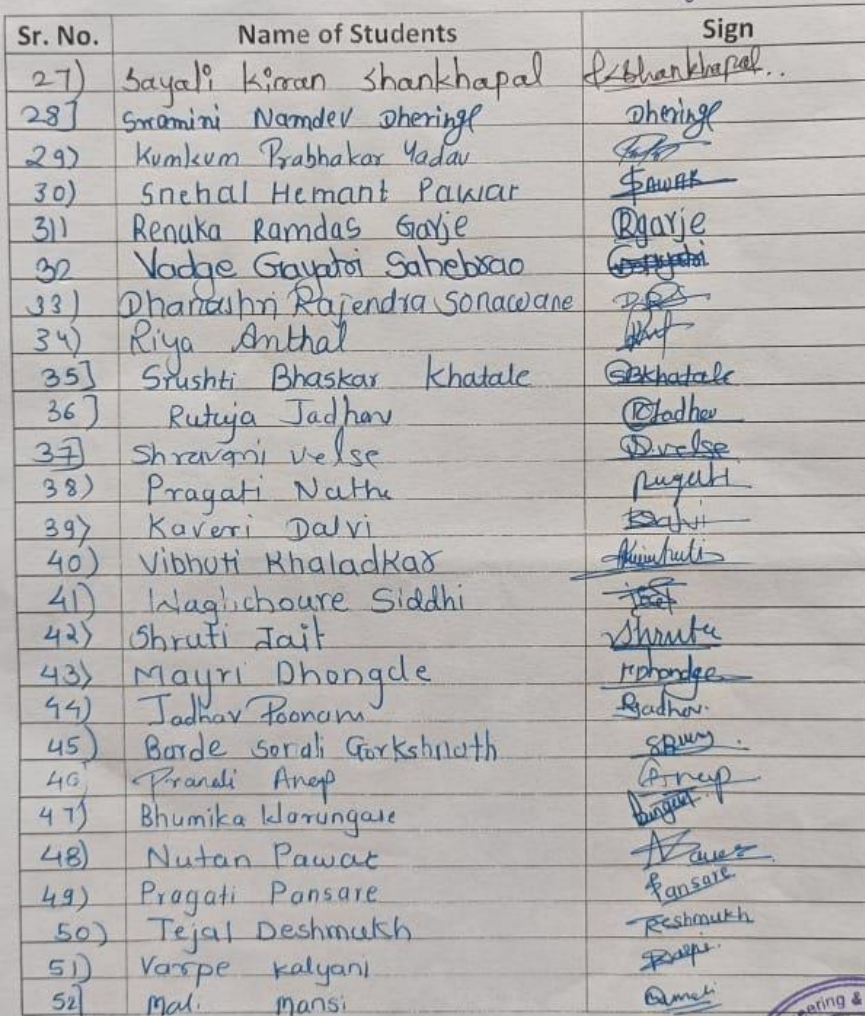 Sr. No. Name of Students Sign
27) Sayali Kiran Shankhapal Shankhapal..
28] Swamini Namdev Dheringe Dheringe
29) Kumkum Prabhakar Yadav
30) Snehal Hemant Pawar PAWAR
311 Renuka Ramdas Garje Rgarje
32 Vadge Gayatri Sahebrao Gayatri
33) Dhanashri Rajendra Sonawane
34) Riya Anthal
35] Srushti Bhaskar Khatale SBKhatale
36] Rutuja Jadhav RJadhav
37] Shravani Velse S.velse
38) Pragati Nathe Pragati
39) Kaveri Dalvi Dalvi
40) Vibhuti Khaladkar
41) Waghchoure Siddhi
42) Shruti Jait Shruti
43) Mayri Dhongde
44) Jadhav Poonam PJadhav.
45) Borde Sonali Gorkshnath
46 Pranali Anap Anap
47) Bhumika Warungase
48) Nutan Pawar
49) Pragati Pansare Pansare
50) Tejal Deshmukh Teshmukh
51) Varpe Kalyani
52] Mali Mansi
ering &